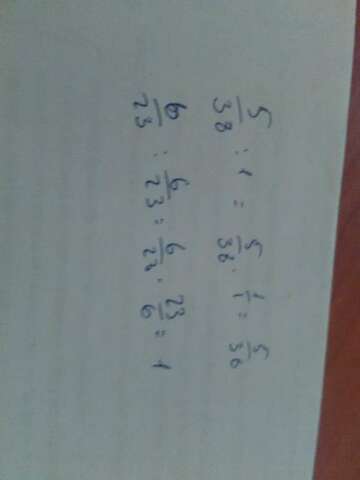 5/38 : 1 = 5/38 · 1/1 = 5/38
6/23 : 6/23 = 6/23 · 23/6 = 1